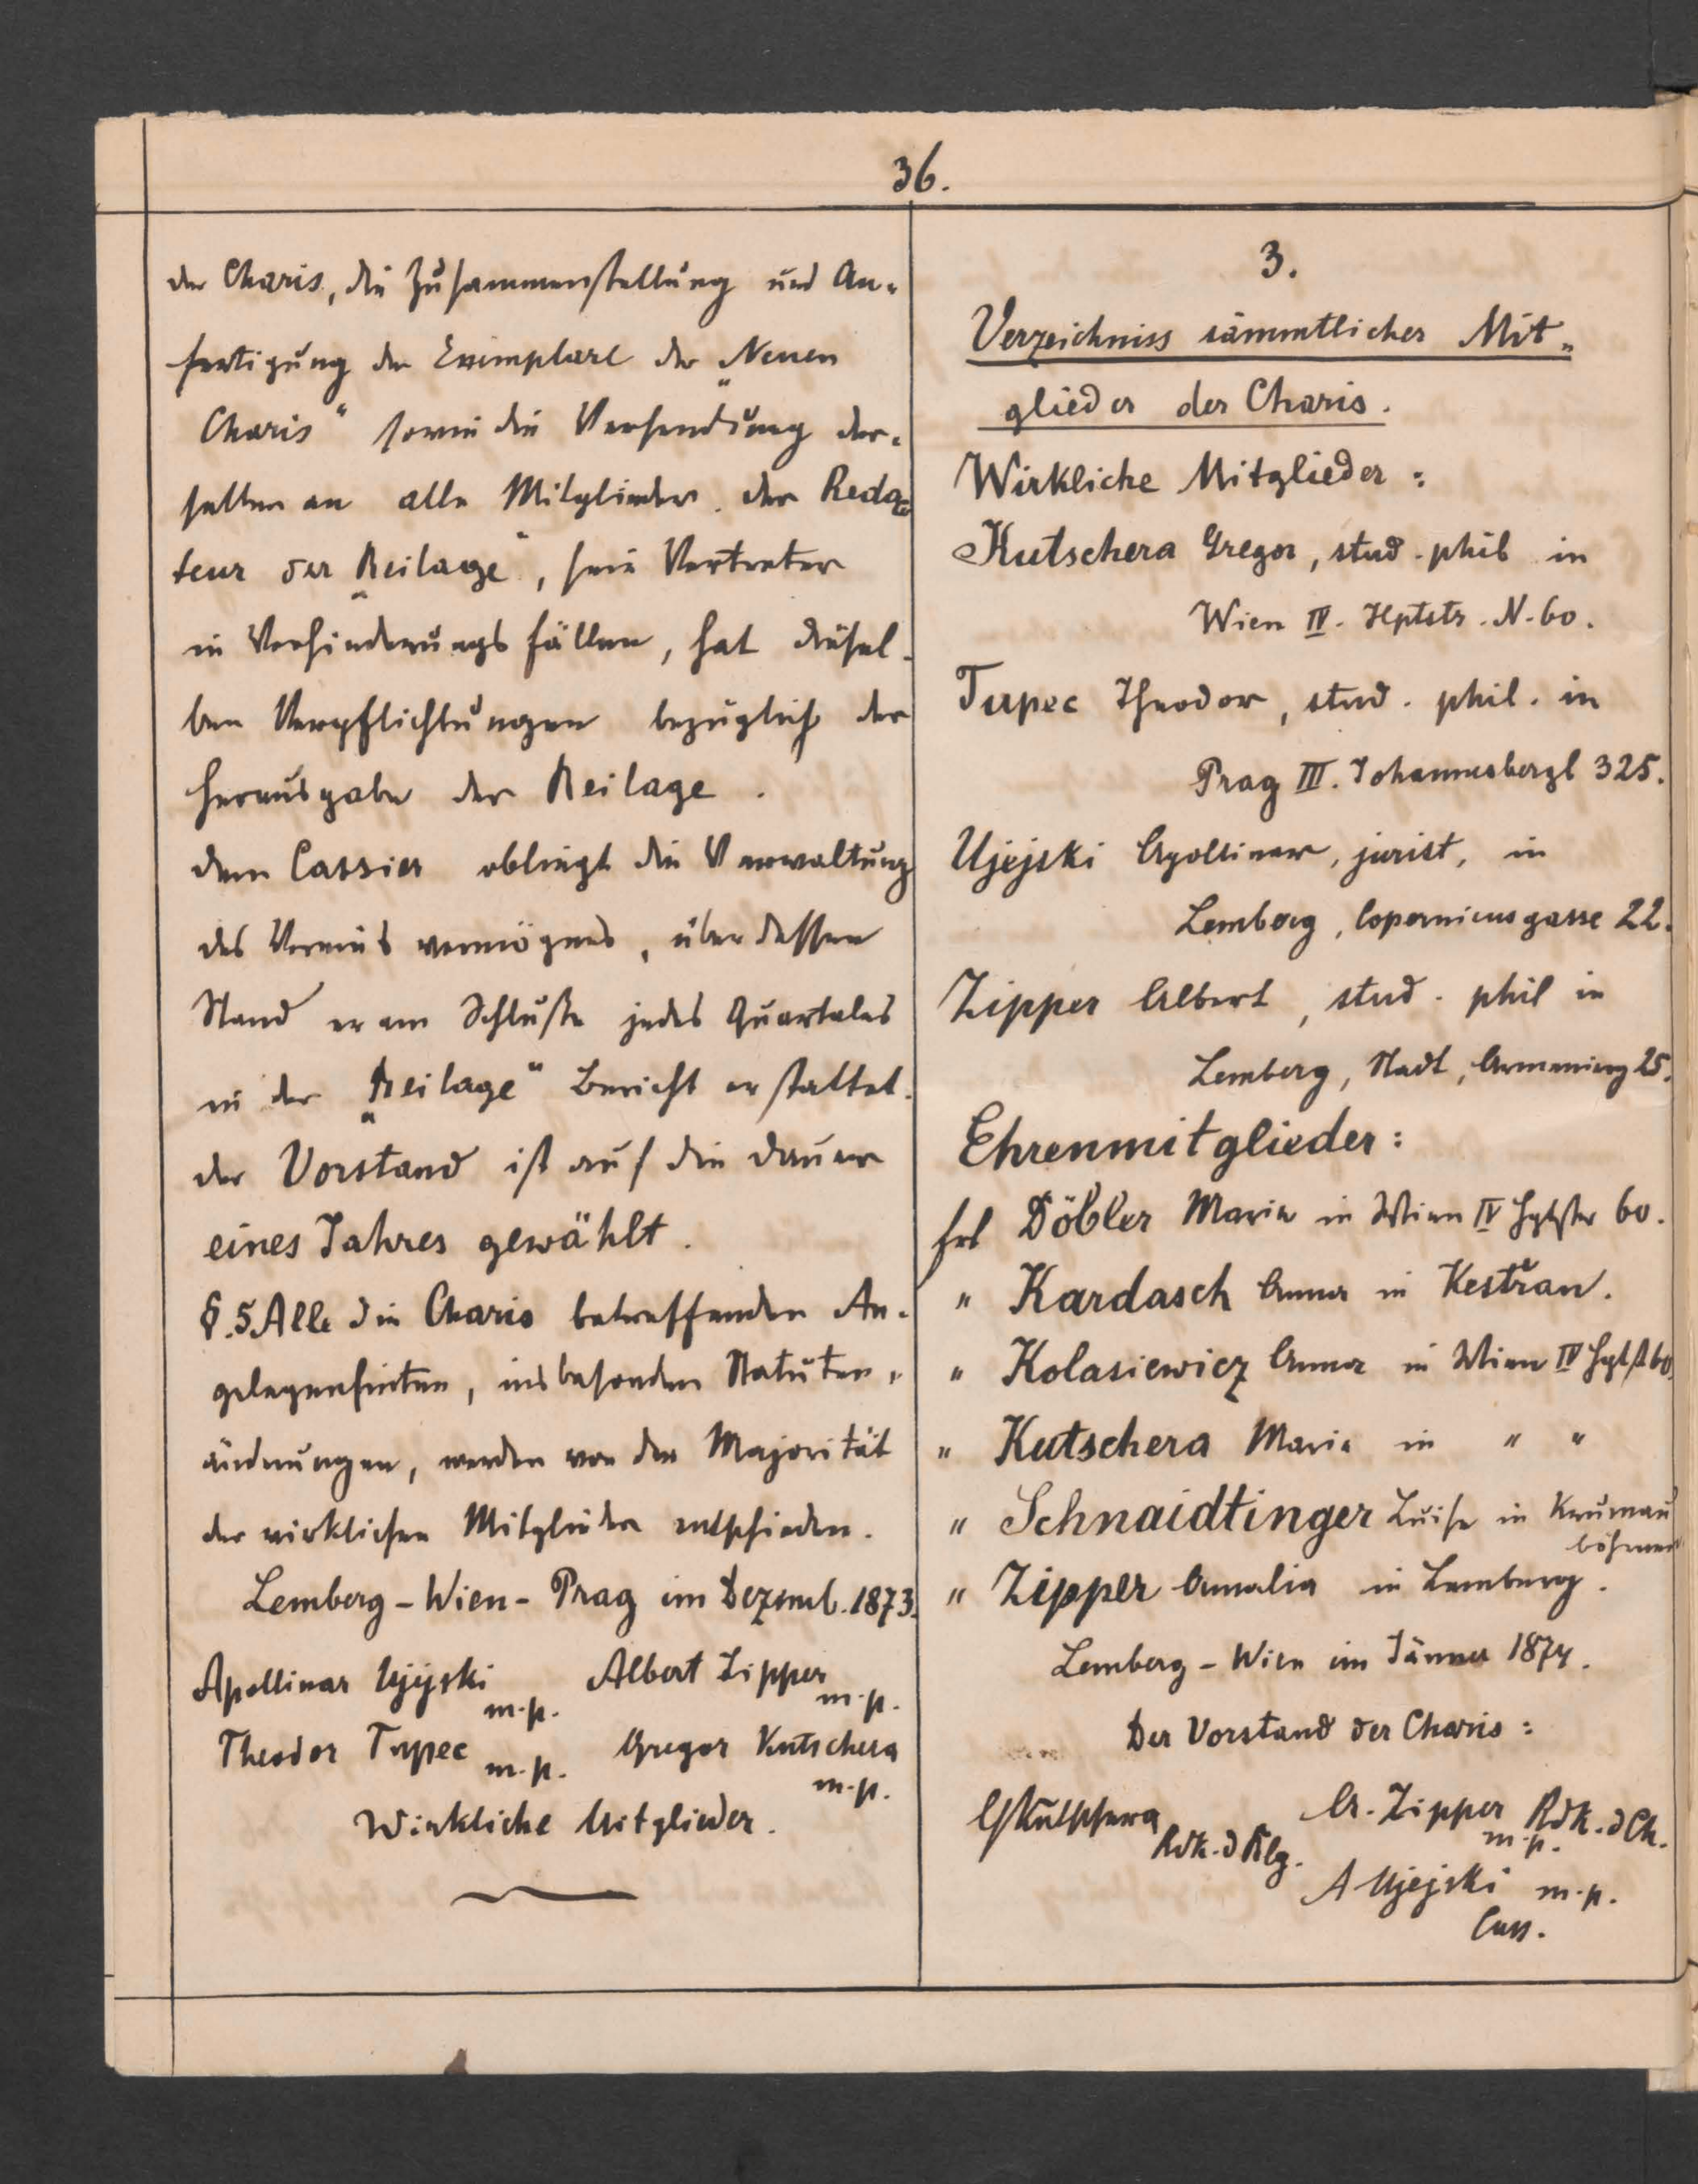 36.
der Charis, die Zusammenstellung und An-
fertigung der Exemplare der „Neuen
Charis“ sowie die Versendung der-
selben an alle Mitglieder. der Redac
teur der „Beilage“, sein Vertreter
in Verhinderungsfällen, hat diesel-
ben Verpflichtungen bezüglich der
Herausgabe der Beilage.
dem Cassier obliegt die Verwaltung
des Vereinsvermögens, über dessen
Stand er am Schluße jedes Quartales
in der „Beilage“ Bericht erstattet.
der Vorstand ist auf die Dauer
eines Jahres gewählt.
§.5. Alle die Charis betreffenden An-
gelegenheiten, insbesonders Statuten-
änderungen, werden von der Majorität
der wirklichen Mitglieder entschieden.
Lemberg - Wien - Prag im Dezemb. 1873.
Apollinar Ujejski m.p. Albert Zipper m.p.
Theodor Tupec m.p. Gregor Kutschera m.p.
Wirkliche Mitglieder.
3.
Verzeichniss sämmtlicher Mit-
glieder der Charis.
Wirkliche Mitglieder:
Kutschera Gregor, stud. phil in
Wien IV. Hptstr. N. 60.
Tupec Theodor, stud. phil. in
Prag III. Johannesbergl 325.
Ujejski Apollinar, jurist, in
Lemberg, Copernicusgasse 22.
Zipper Albert, stud. phil in
Lemberg, Stadt, 25.
Ehrenmitglieder:
Frl Döbler Marie in Wien IV Hptstr 60.
" Kardasch Anna in Kestřan.
" Kolasiewicz Anna in Wien IV Hptst 60.
" Kutschera Marie in " "
" Schnaidtinger Luise in Krumau
Böhmen
" Zipper Amalia in Lemberg.
Lemberg - Wien im Jänner 1874.
Der Vorstand der Charis:
GKutschera A. Zipper m.p. Rdk. d Ch.
Rdk. d Blg.
A Ujejski m.p.
Cass.